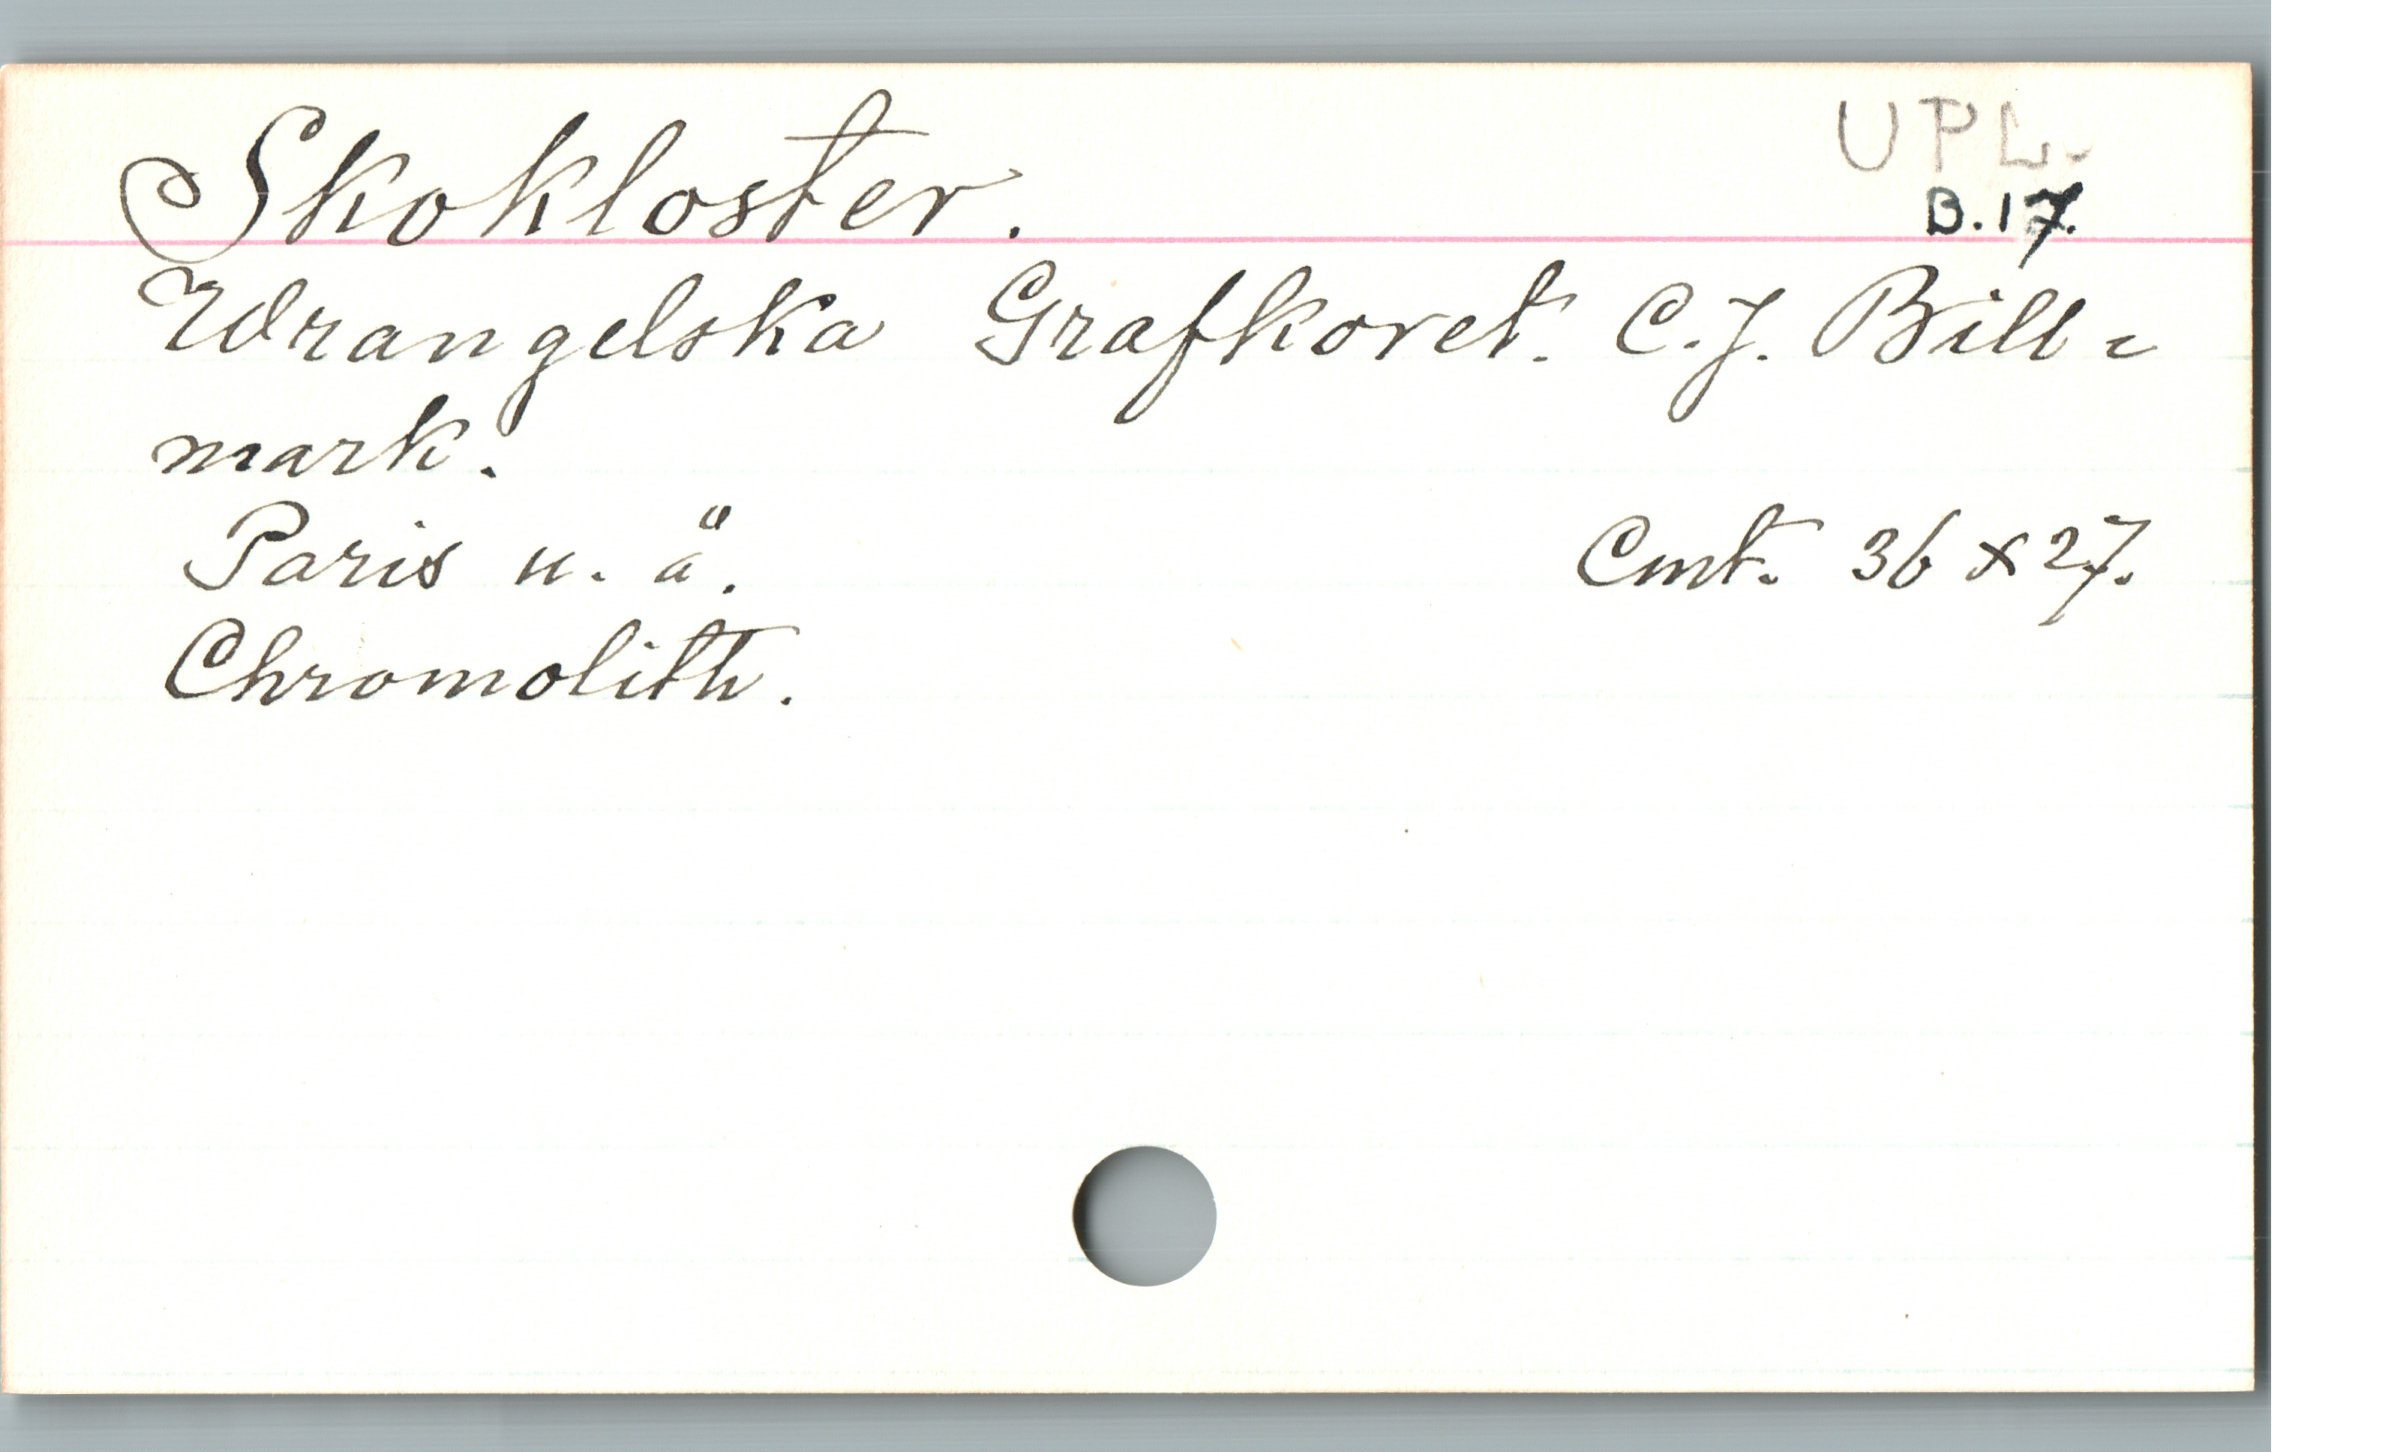 Skokloster.
UPL.
B.17.
Wrangelska Grafkoret. C.J. Bill-
mark.
Paris u. å.
Cmt. 36 x 27.
Chromolith.